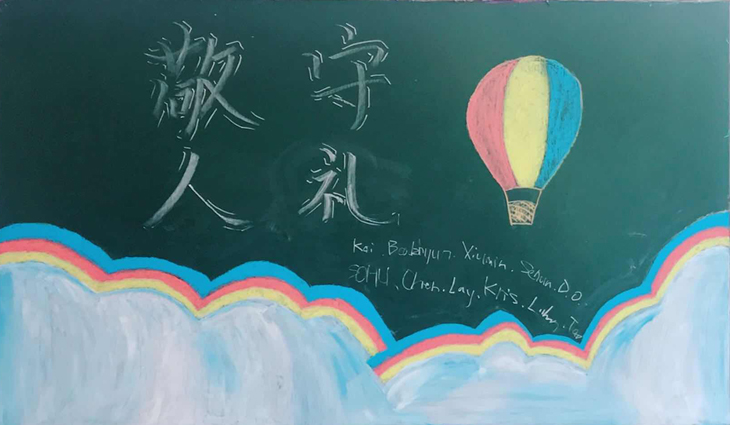 守礼
敬人
Kai . Baekhyun . Xiumin . Sehun . D.O.
Chen . Lay . Kris . Luhan . Tao